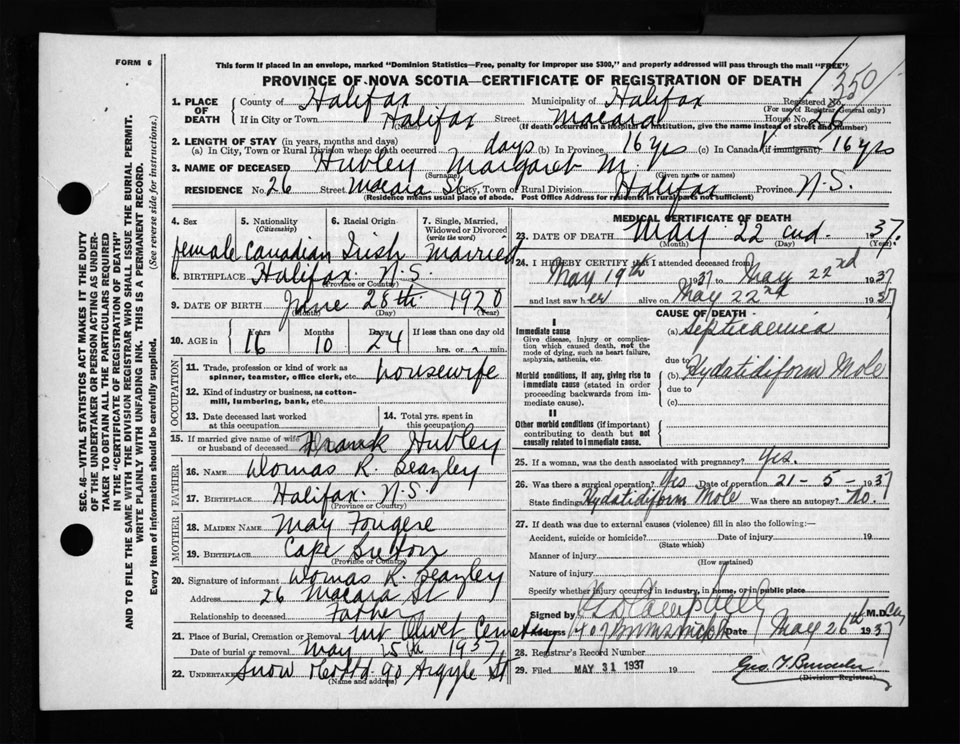 FORM 6
This form if placed in an envelope, marked "Dominion Statistics—Free, penalty for improper use $300," and properly addressed will pass through the mail "FREE"
PROVINCE OF NOVA SCOTIA—CERTIFICATE OF REGISTRATION OF DEATH
350
Registered No.
(For use of Registrar General only)
1. PLACE OF DEATH
County of Halifax Municipality of Halifax
If in City or Town Halifax Street Macara House No. 26
(Name)
(If death occurred in a hospital or institution, give the name instead of street and number)
2. LENGTH OF STAY (in years, months and days)
(a) In City, Town or Rural Division where death occurred days (b) In Province 16 yrs (c) In Canada (if immigrant) 16 yrs
3. NAME OF DECEASED Hubley Margaret M.
(Surname) (Given name or names)
RESIDENCE No. 26 Street Macara St City, Town or Rural Division Halifax Province N.S.
(Residence means usual place of abode. Post Office Address for residents in rural parts not sufficient)
4. Sex female
5. Nationality (Citizenship) Canadian
6. Racial Origin Irish
7. Single, Married, Widowed or Divorced (write the word) Married
8. BIRTHPLACE Halifax. N.S.
(Province or Country)
9. DATE OF BIRTH June 28th 1920
(Month) (Day) (Year)
10. AGE in Years 16 Months 10 Days 24 If less than one day old hrs. or min.
OCCUPATION
11. Trade, profession or kind of work as spinner, teamster, office clerk, etc. housewife
12. Kind of industry or business, as cotton-mill, lumbering, bank, etc.
13. Date deceased last worked at this occupation
14. Total yrs. spent in this occupation
15. If married give name of wife or husband of deceased Frank Hubley
FATHER
16. NAME Thomas R. Beazley
17. BIRTHPLACE Halifax. N.S.
(Province or Country)
MOTHER
18. MAIDEN NAME May Fougere
19. BIRTHPLACE Cape Breton
(Province or Country)
20. Signature of informant Thomas R. Beazley
Address 26 Macara St
Relationship to deceased Father
21. Place of Burial, Cremation or Removal Mt Olivet Cemetery
Date of burial or removal May 25th 1937
22. UNDERTAKER Snow & Co Ltd. 90 Argyle St
(Name and address)
MEDICAL CERTIFICATE OF DEATH
23. DATE OF DEATH May 22nd. 1937.
(Month) (Day) (Year)
24. I HEREBY CERTIFY that I attended deceased from
May 19th 1937 to May 22nd 1937
and last saw her alive on May 22nd 1937
CAUSE OF DEATH
I
Immediate cause
Give disease, injury or complication which caused death, not the mode of dying, such as heart failure, asphyxia, asthenia, etc.
(a) Septicaemia
due to
Morbid conditions, if any, giving rise to immediate cause (stated in order proceeding backwards from immediate cause).
(b) Hydatidiform Mole
due to
(c)
II
Other morbid conditions (if important) contributing to death but not causally related to immediate cause.
25. If a woman, was the death associated with pregnancy? Yes.
26. Was there a surgical operation? Yes Date of operation 21-5-1937
State findings Hydatidiform Mole Was there an autopsy? No.
27. If death was due to external causes (violence) fill in also the following:—
Accident, suicide or homicide? Date of injury 19
(State which)
Manner of injury
(How sustained)
Nature of injury
Specify whether injury occurred in industry, in home, or in public place
Signed by Campbell M.D.
Address 407 Brunswick Date May 26th 1937
28. Registrar's Record Number
29. Filed MAY 31 1937 19
(Division Registrar)
SEC. 46—VITAL STATISTICS ACT MAKES IT THE DUTY
OF THE UNDERTAKER OR PERSON ACTING AS UNDER-
TAKER TO OBTAIN ALL THE PARTICULARS REQUIRED
IN THE "CERTIFICATE OF REGISTRATION OF DEATH"
AND TO FILE THE SAME WITH THE DIVISION REGISTRAR WHO SHALL ISSUE THE BURIAL PERMIT.
WRITE PLAINLY WITH UNFADING INK. THIS IS A PERMANENT RECORD.
Every item of information should be carefully supplied. (See reverse side for instructions.)